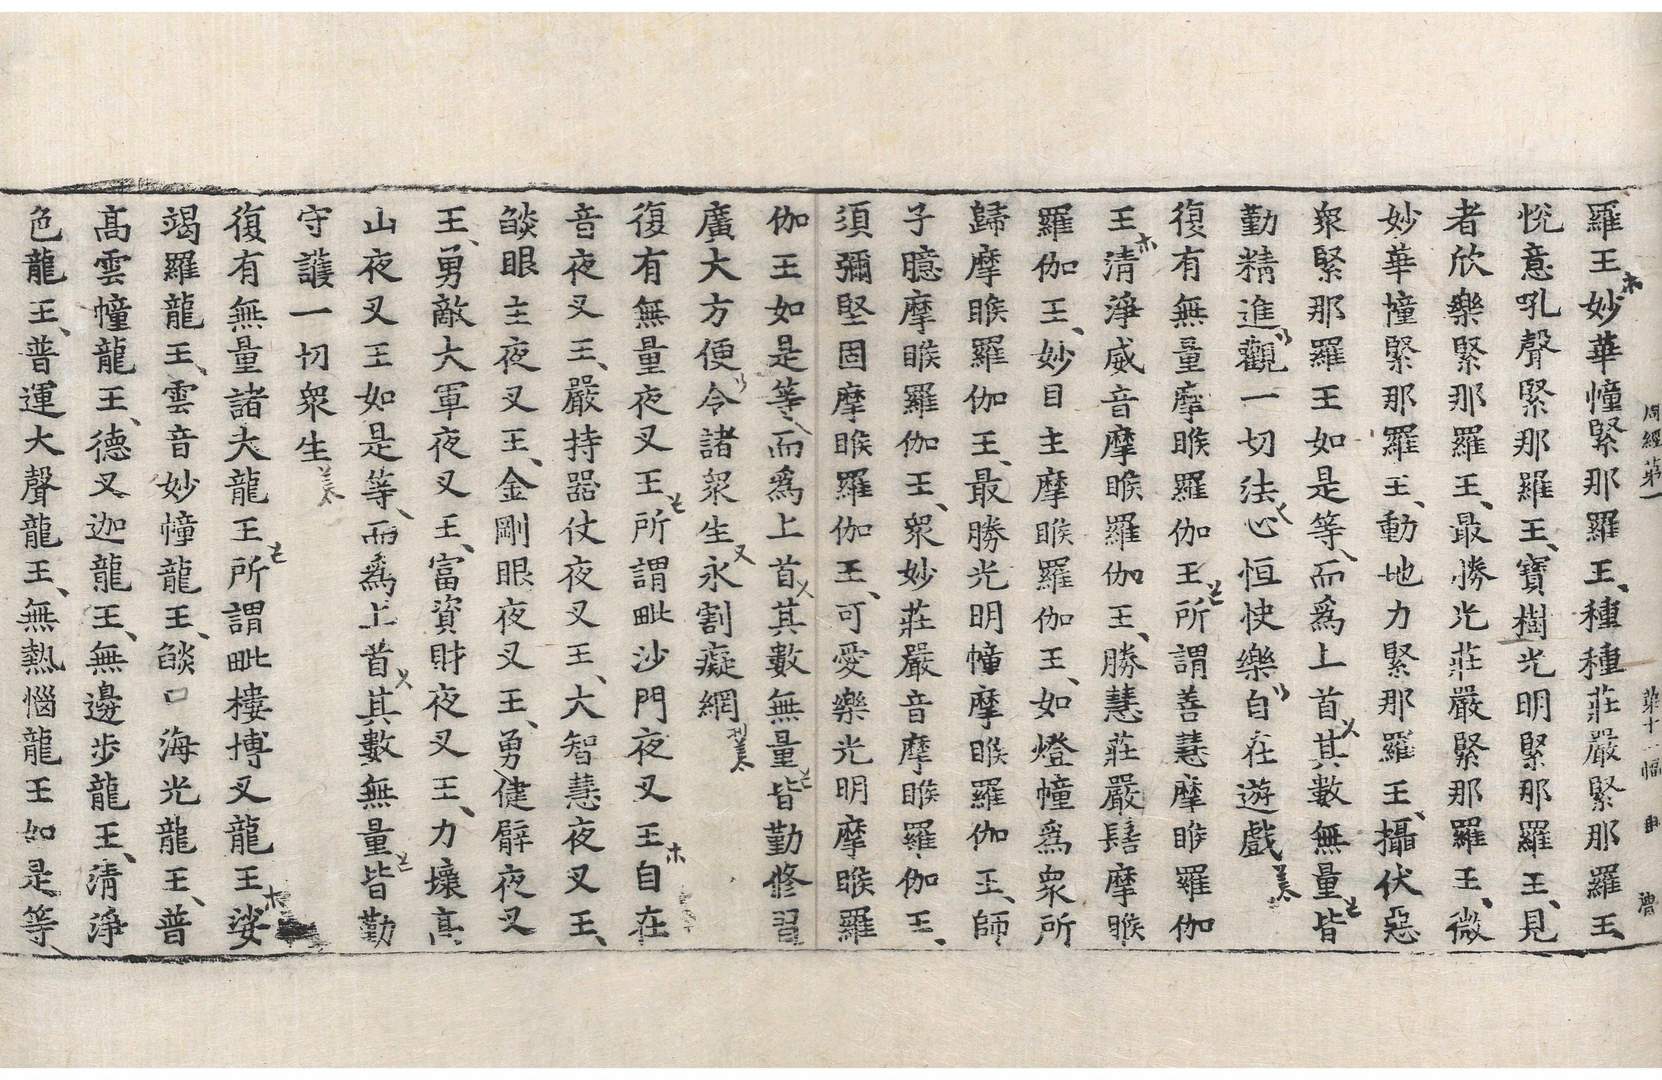 周經第一　第十一幅　冊
羅王妙華幢緊那羅王種種莊嚴緊那羅王
悅意吼聲緊那羅王寶樹光明緊那羅王見
者欣樂緊那羅王最勝光莊嚴緊那羅王微
妙華幢緊那羅王動地力緊那羅王攝伏惡
衆緊那羅王如是等而爲上首其數無量皆
勤精進觀一切法心恒快樂自在遊戲
復有無量摩睺羅伽王所謂善慧摩睺羅伽
王清淨威音摩睺羅伽王勝慧莊嚴髻摩睺
羅伽王妙目主摩睺羅伽王如燈幢爲衆所
歸摩睺羅伽王最勝光明幢摩睺羅伽王師
子臆摩睺羅伽王衆妙莊嚴音摩睺羅伽王
須彌堅固摩睺羅伽王可愛樂光明摩睺羅
伽王如是等而爲上首其數無量皆勤修習
廣大方便令諸衆生永割癡網
復有無量夜叉王所謂毗沙門夜叉王自在
音夜叉王嚴持器仗夜叉王大智慧夜叉王
燄眼主夜叉王金剛眼夜叉王勇健臂夜叉
王勇敵大軍夜叉王富資財夜叉王力壞高
山夜叉王如是等而爲上首其數無量皆勤
守護一切衆生
復有無量諸大龍王所謂毗樓博叉龍王娑
竭羅龍王雲音妙幢龍王燄口海光龍王普
高雲幢龍王德叉迦龍王無邊步龍王清淨
色龍王普運大聲龍王無熱惱龍王如是等